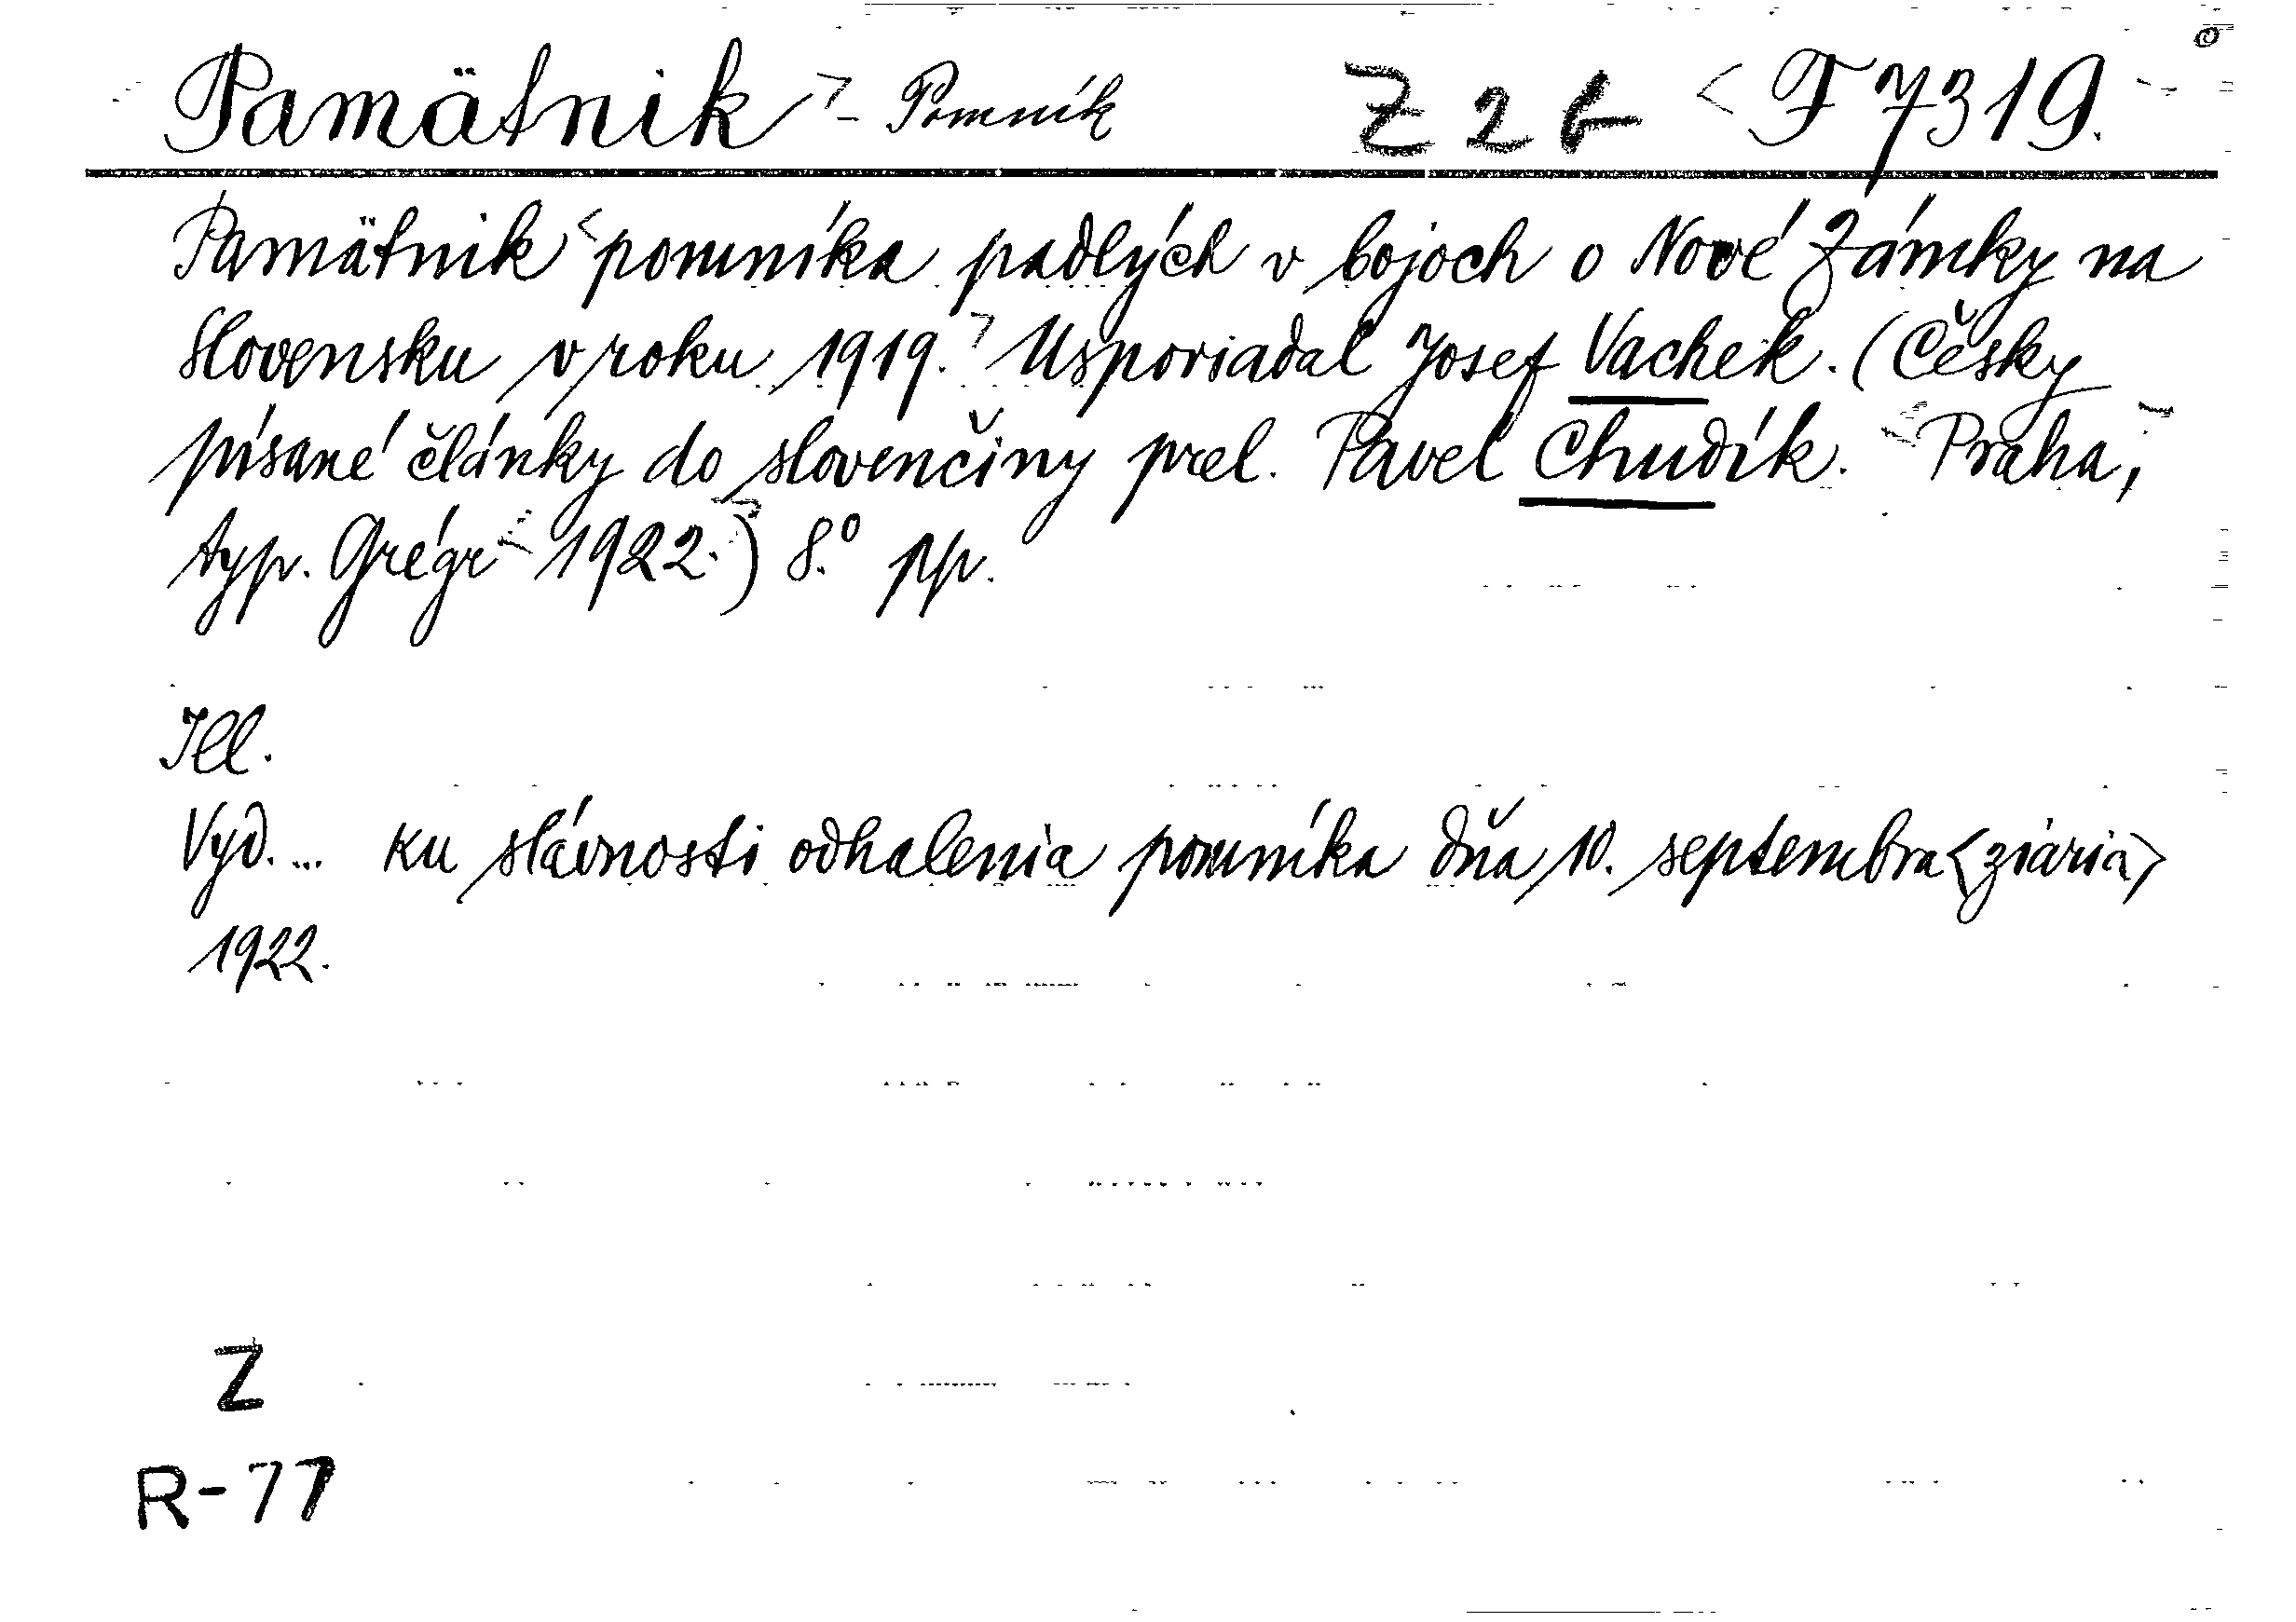 Pamätnik - Pomník Z 2 b < F 7319.
Pamätnik pomníka padlých v bojoch o Nové Zámky na
Slovensku v roku 1919. Usporiadal Josef Vachek. (Česky
písané články do slovenčiny prel. Pavel Chudík. Praha,
typ. Grégr 1922.) 8.° pp.
Ill.
Vyd. ... ku slávnosti odhalenia pomníka dňa 10. septembra <ziária>
1922.
Z
R-77